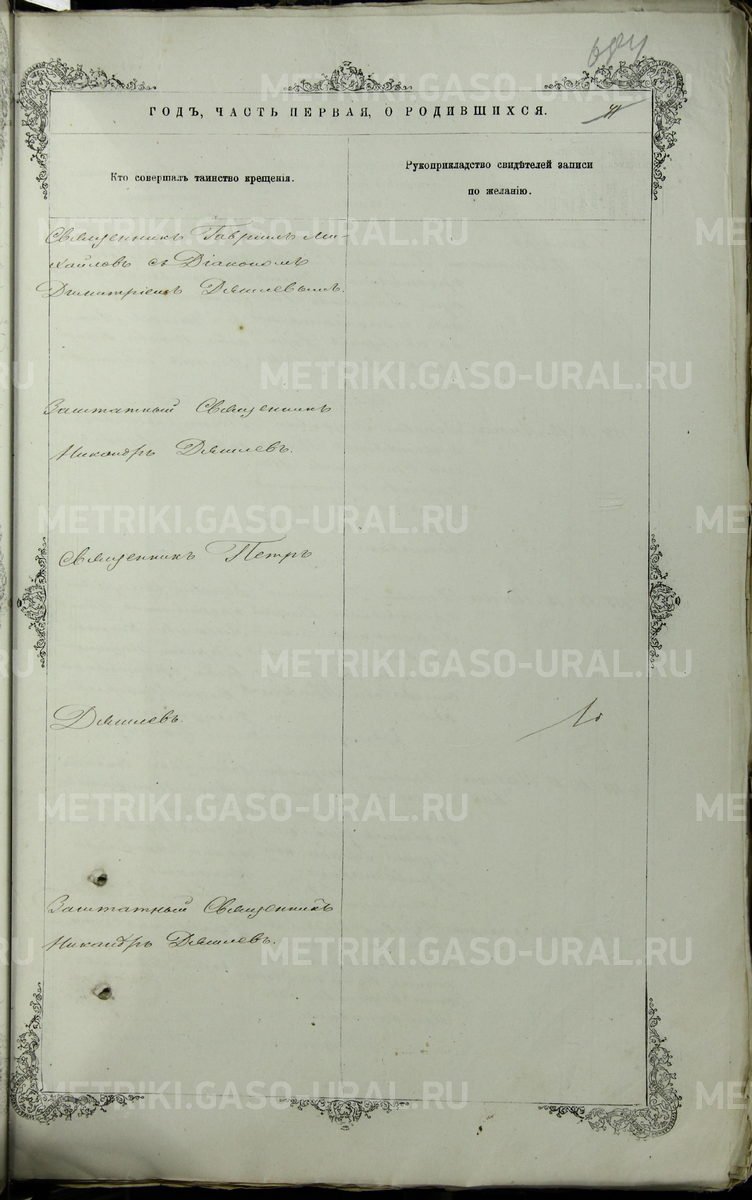 ГОДЪ, ЧАСТЬ ПЕРВАЯ, О РОДИВШИХСЯ.
Кто совершалъ таинство крещенія.
Рукоприкладство свидѣтелей записи
по желанію.
Священникъ Гавріилъ Ми-
хайловъ съ Діакономъ
Димитріемъ
Заштатный Священникъ
Никандръ
Священникъ Петръ
Заштатный Священникъ
Никандръ
METRIKI.GASO-URAL.RU
METRIKI.GASO-URAL.RU
METRIKI.GASO-URAL.RU
METRIKI.GASO-URAL.RU
METRIKI.GASO-URAL.RU
METRIKI.GASO-URAL.RU
METRIKI.GASO-URAL.RU
METRIKI.GASO-URAL.RU